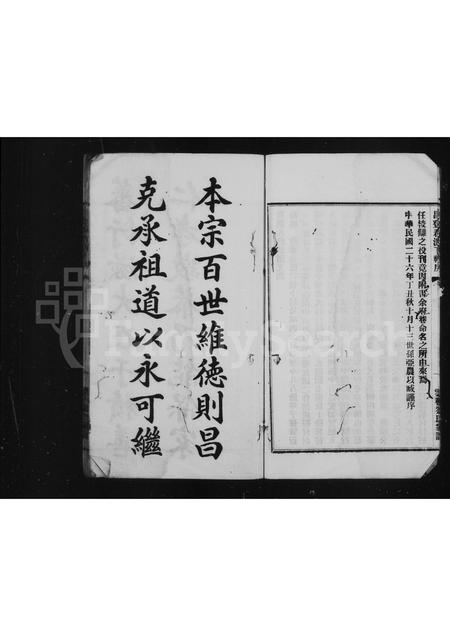 任校讎之役刊竟因附識余府卷命名之所由來焉
中華民國二十六年丁丑秋十月十三世孫亞農以威謹序
本宗百世維德則昌
克承祖道以永可繼
FamilySearch